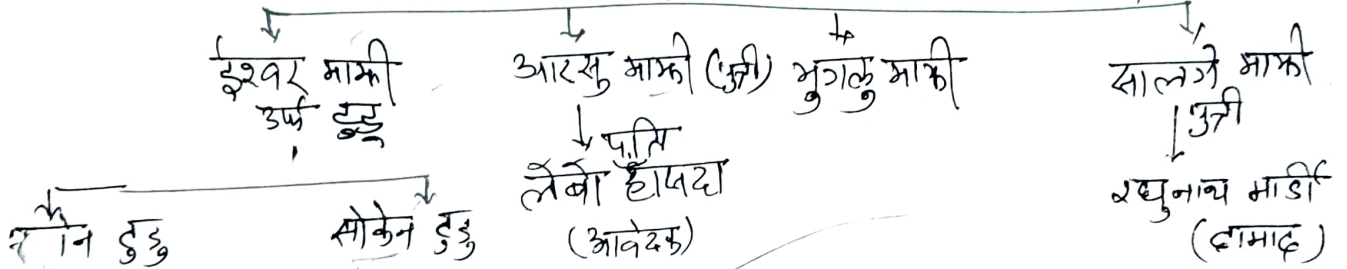 ईश्वर माझी
उर्फ टुडू
आरसु माझी (पुत्री)
भुगलु माझी
सालगे माझी
पुत्री
पति
लेबो हाँसदा
(आवेदक)
रघुनाथ मार्डी
(दामाद)
टुडु
सोकेन टुडु